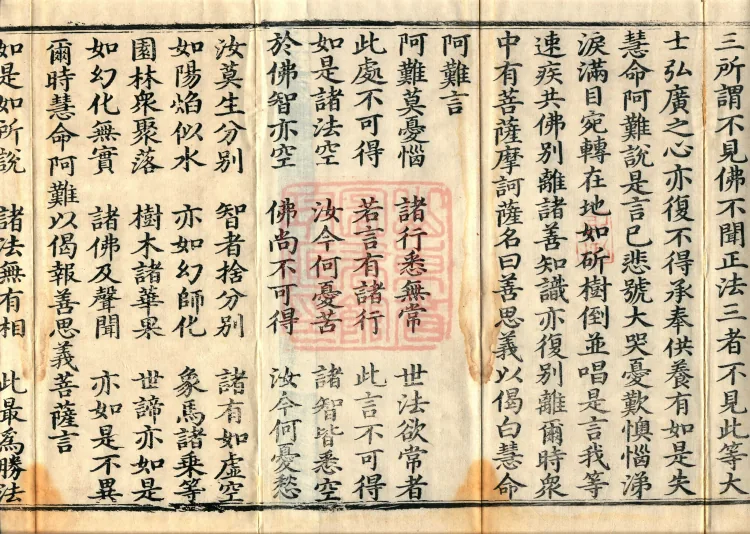 三所謂不見佛不聞正法三者不見此等大
士弘廣之心亦復不得承奉供養有如是失
慧命阿難說是言已悲號大哭憂歎懊惱涕
淚滿目宛轉在地如斫樹倒並唱是言我等
速疾共佛別離諸善知識亦復別離爾時衆
中有菩薩摩訶薩名曰善思義以偈白慧命
阿難言
阿難莫憂惱 諸行悉無常 世法欲常者
此處不可得 若言有諸行 此言不可得
如是諸法空 汝今何憂苦 諸智皆悉空
於佛智亦空 佛尚不可得 汝今何憂愁
汝莫生分別 智者捨分別 諸有如虛空
如陽焰似水 亦如幻師化 象馬諸乘等
園林衆聚落 樹木諸華果 世諦亦如是
如幻化無實 諸佛及聲聞 亦如是不異
爾時慧命阿難以偈報善思義菩薩言
如是如所說 諸法無有相 此最爲勝法